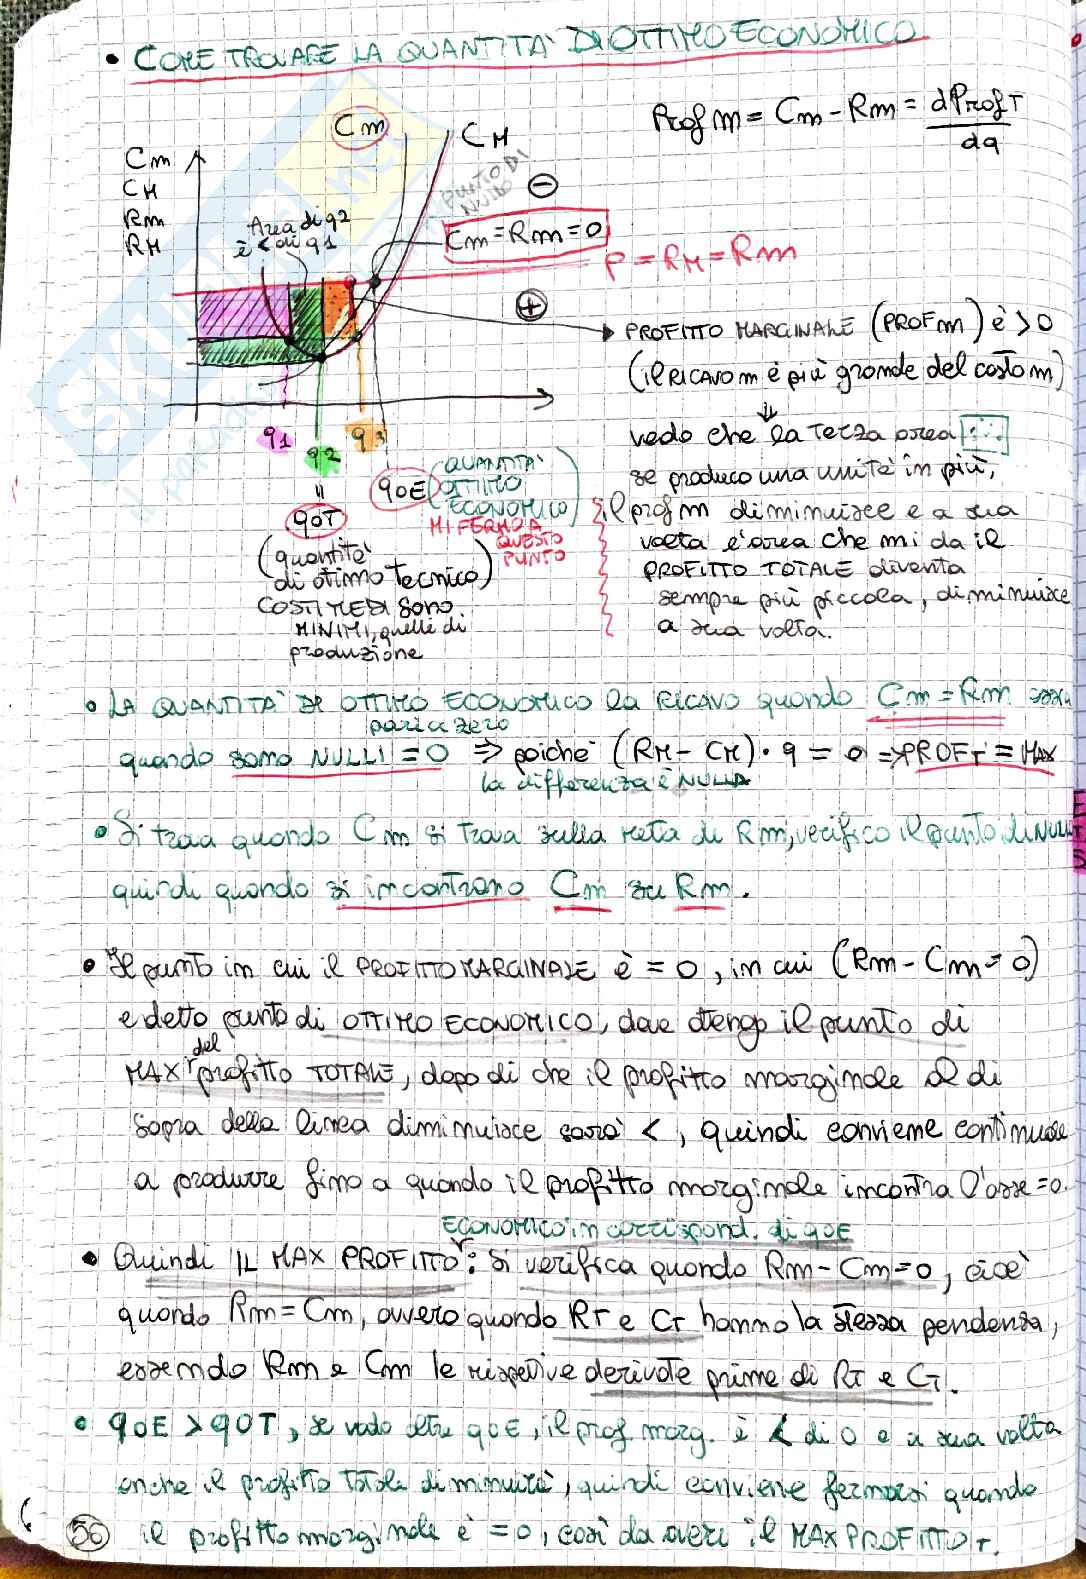 • COME TROVARE LA QUANTITA' DI OTTIMO ECONOMICO
Prof m = Cm - Rm = dProfT
dq
Cm
CM
Rm
RM
Cm
CM
PUNTO DI
NULLO
Area di q2
è < di q1
Cm = Rm = 0
P = RM = Rm
PROFITTO MARGINALE (PROF m) è > 0
(il RICAVO m è più grande del costo m)
vedo che la terza area
se produco una unità in più,
il prof m diminuisce e a sua
volta l'area che mi da il
PROFITTO TOTALE diventa
sempre più piccola, diminuisce
a sua volta.
q1
q2
q3
=
qOT
(quantità
di ottimo tecnico)
COSTI MEDI sono
MINIMI, quelli di
produzione
qOE (QUANTITA'
OTTIMO
ECONOMICO)
MI FERMO A
QUESTO
PUNTO
• LA QUANTITA' DI OTTIMO ECONOMICO la RICAVO quando Cm = Rm ossia
pari a zero
quando sono NULLI = 0 ⇒ poiché (RM - CM) • q = 0 ⇒ PROFT = MAX
la differenza è NULLA
• Si trova quando Cm si trova sulla retta di Rm, verifico il punto di NULL
quindi quando si incontrano Cm su Rm.
• Il punto in cui il PROFITTO MARGINALE è = 0, in cui (Rm - Cm = 0)
e detto punto di OTTIMO ECONOMICO, dove ottengo il punto di
MAX del profitto TOTALE, dopo di che il profitto marginale al di
sopra della linea diminuisce sarà <, quindi conviene continuare
a produrre fino a quando il profitto marginale incontra l'asse = 0.
ECONOMICO in corrispond. di qOE
• Quindi IL MAX PROFITTO: si verifica quando Rm - Cm = 0, cioè
quando Rm = Cm, ovvero quando RT e CT hanno la stessa pendenza,
essendo Rm e Cm le rispettive derivate prime di RT e CT.
• qOE > qOT, se vado oltre qOE, il prof marg. è < di 0 e a sua volta
anche il profitto totale diminuirà, quindi conviene fermarsi quando
56 il profitto marginale è = 0, così da avere il MAX PROFITTO T.